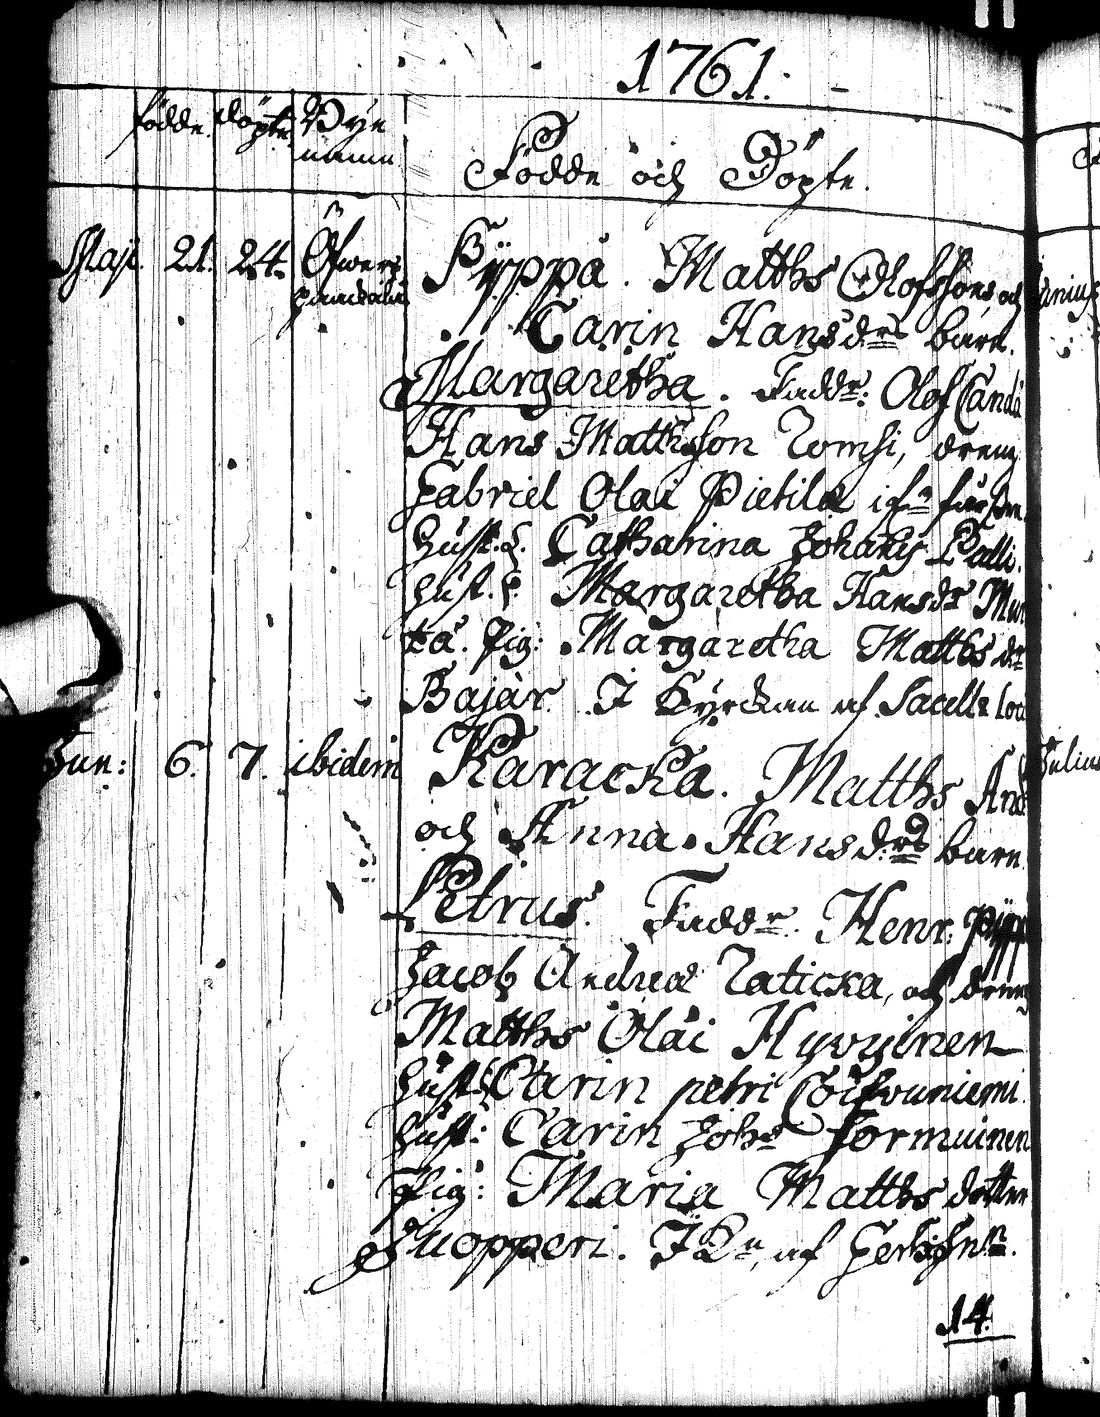 1761.
födde. döpte. Byenamn
Födde och Döpte.
Maji. 21. 24. Öfwers
Pyppä. Matths Olofssons och
Carin Hansdrs barn.
Margaretha. Faddr: Olof
Hans Matthsson Tomsi, dreng
Gabriel Olai Pietilæ
Hust. Catharina Johans Palli.
Hust. Margaretha Hansdr
Pig: Margaretha Matths dr
Bajàr. I Kyrckan af Sacell:
Jun: 6. 7. ibidem Karacka. Matths
och Anna Hansdrs barn
Petrus. Faddr. Henr. Pypp
Jacob Andreæ Taticka, och dreng
Matths Olai Hyvyinen
Hust. Carin petri Coifvuniemi
Hust: Carin Johs Formuinen
Pig: Maria Matths dotter
Juopperi. af
14.